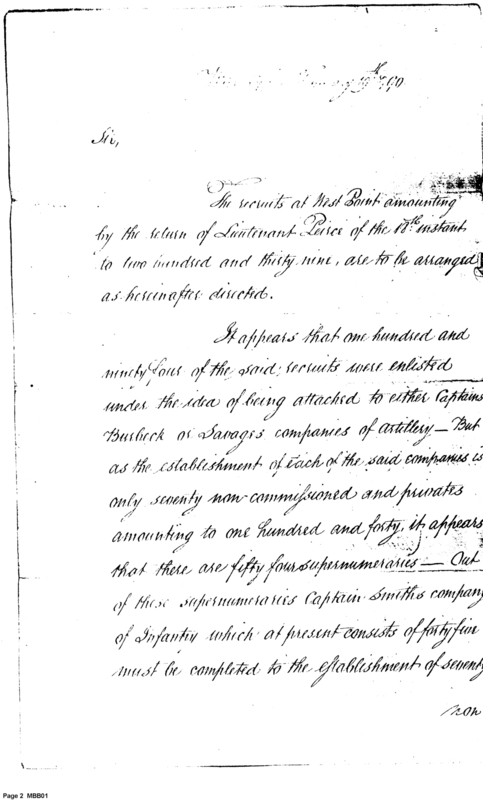 1790
Sir,
The recruits at West Point amounting
by the return of Lieutenant Peirce of the 18th instant
to two hundred and thirty nine, are to be arranged
as hereinafter directed.
It appears that one hundred and
ninety four of the said recruits were enlisted
under the idea of being attached to either Captains
Burbeck or Savages companies of artillery — But
as the establishment of each of the said companies is
only seventy non-commissioned and privates
amounting to one hundred and forty, it appears
that there are fifty four supernumeraries — Out
of these supernumeraries Captain Smiths company
of Infantry which at present consists of forty five
must be completed to the establishment of seventy
non
Page 2 MBB01